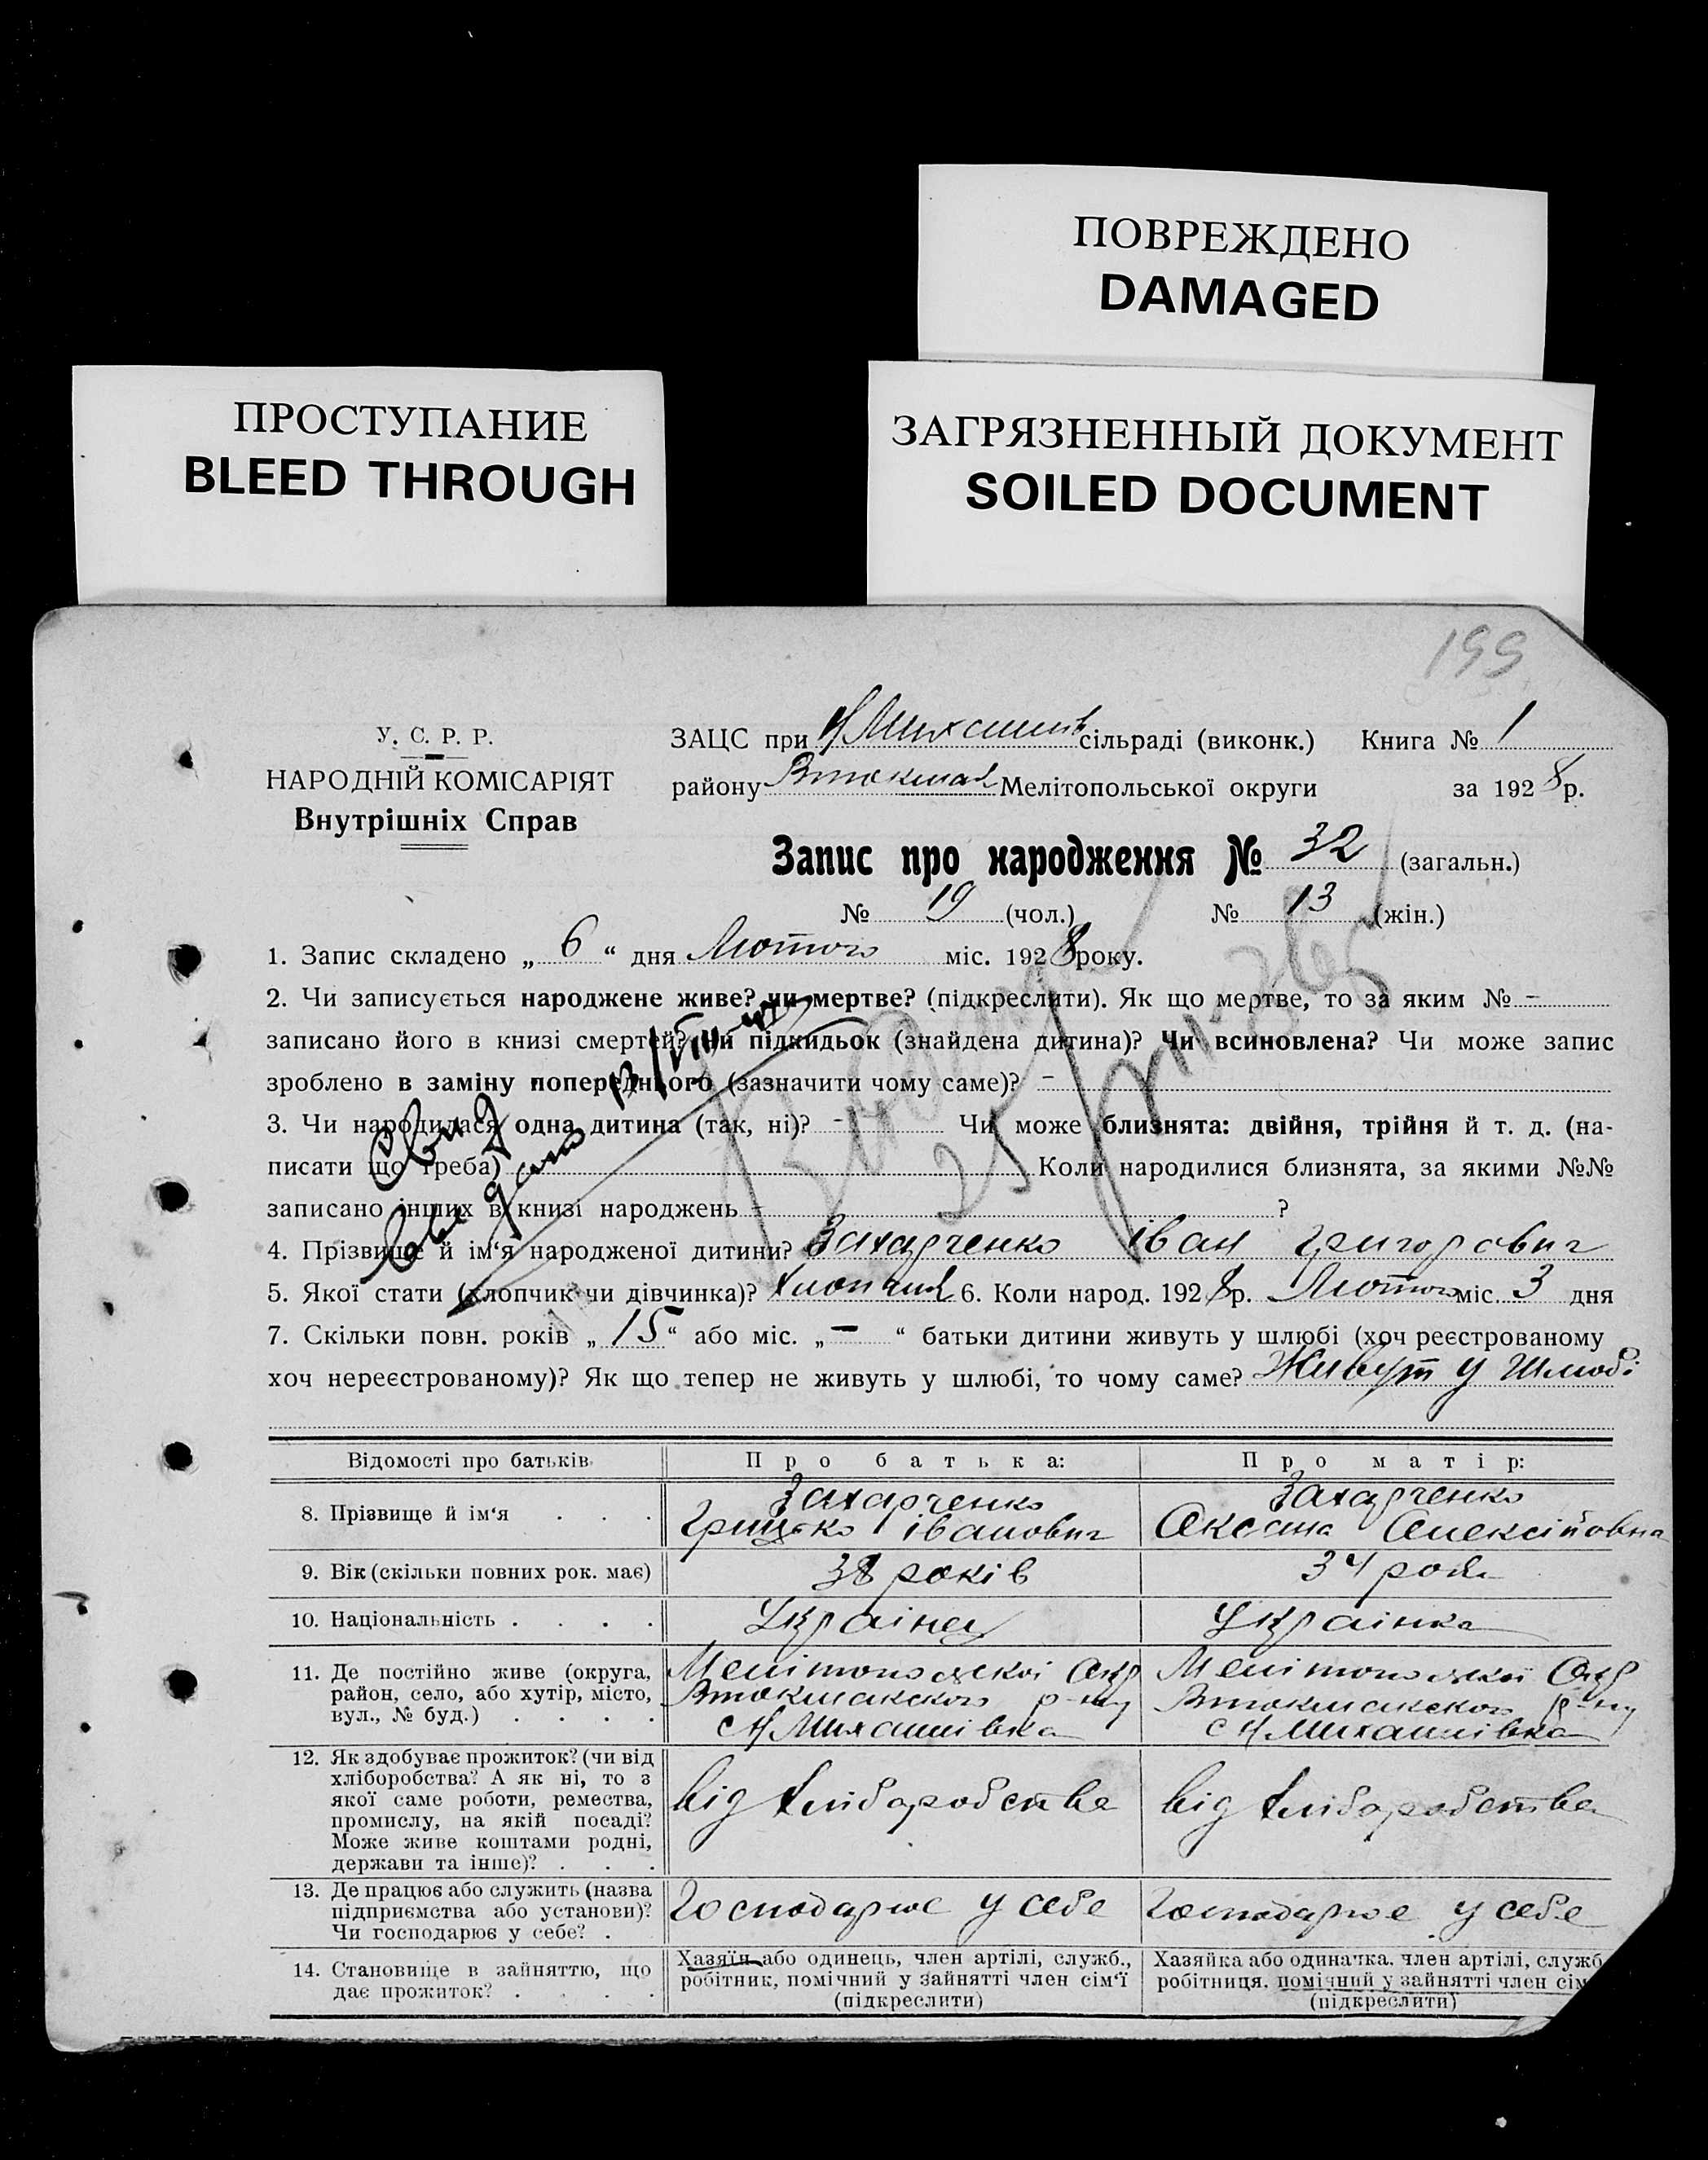 ПОВРЕЖДЕНО
DAMAGED
ПРОСТУПАНИЕ
BLEED THROUGH
ЗАГРЯЗНЕННЫЙ ДОКУМЕНТ
SOILED DOCUMENT
199
У. С. Р. Р.
НАРОДНІЙ КОМІСАРІЯТ
Внутрішніх Справ
ЗАЦС при Н Михайлів сільраді (виконк.) Книга № 1
району Втокмак Мелітопольської округи за 1928 р.
Запис про народження № 32 (загальн.)
№ 19 (чол.) № 13 (жін.)
1. Запис складено „ 6 “ дня Лютого міс. 1928 року.
2. Чи записується народжене живе? чи мертве? (підкреслити). Як що мертве, то за яким № -
записано його в книзі смертей? Чи підкидьок (знайдена дитина)? Чи всиновлена? Чи може запис
зроблено в заміну попереднього (зазначити чому саме)? -
3. Чи народилася одна дитина (так, ні)? Чи може близнята: двійня, трійня й т. д. (на-
писати що треба) Коли народилися близнята, за якими №№
записано інших в книзі народжень - ?
4. Прізвище й ім‘я народженої дитини? Захарченко Іван Григорович
5. Якої стати (хлопчик чи дівчинка)? хлопчик 6. Коли народ. 1928 р. Лютого міс. 3 дня
7. Скільки повн. років „ 15 “ або міс. „ — “ батьки дитини живуть у шлюбі (хоч реєстрованому
хоч нереєстрованому)? Як що тепер не живуть у шлюбі, то чому саме? Живут у шлюбі
Відомості про батьків Про батька: Про матір:
8. Прізвище й ім‘я . . . Захарченко Грицько Іванович Захарченко Оксана Олексійовна
9. Вік (скільки повних рок. має) 38 років 34 роки
10. Національність . . . . Українец Українка
11. Де постійно живе (округа,
район, село, або хутір, місто,
вул., № буд.) . . . .
Мелітопольскої Окр
Втокмакского р-ну
с Н Михайлівка
Мелітопольскої Окр
Втокмакского р-ну
с Н Михайлівка
12. Як здобуває прожиток? (чи від
хліборобства? А як ні, то з
якої саме роботи, ремества,
промислу, на якій посаді?
Може живе коштами родні,
держави та інше)? . . .
від хліборобства
від хліборобства
13. Де працює або служить (назва
підприємства або установи)?
Чи господарює у себе? .
Господарює у себе
Господарює у себе
14. Становище в зайняттю, що
дає прожиток? . . . .
Хазяїн або одинець, член артілі, служб.,
робітник, помічний у зайнятті член сім‘ї
(підкреслити)
Хазяйка або одиначка, член артілі, служб
робітниця, помічний у зайнятті член сім
(підкреслити)